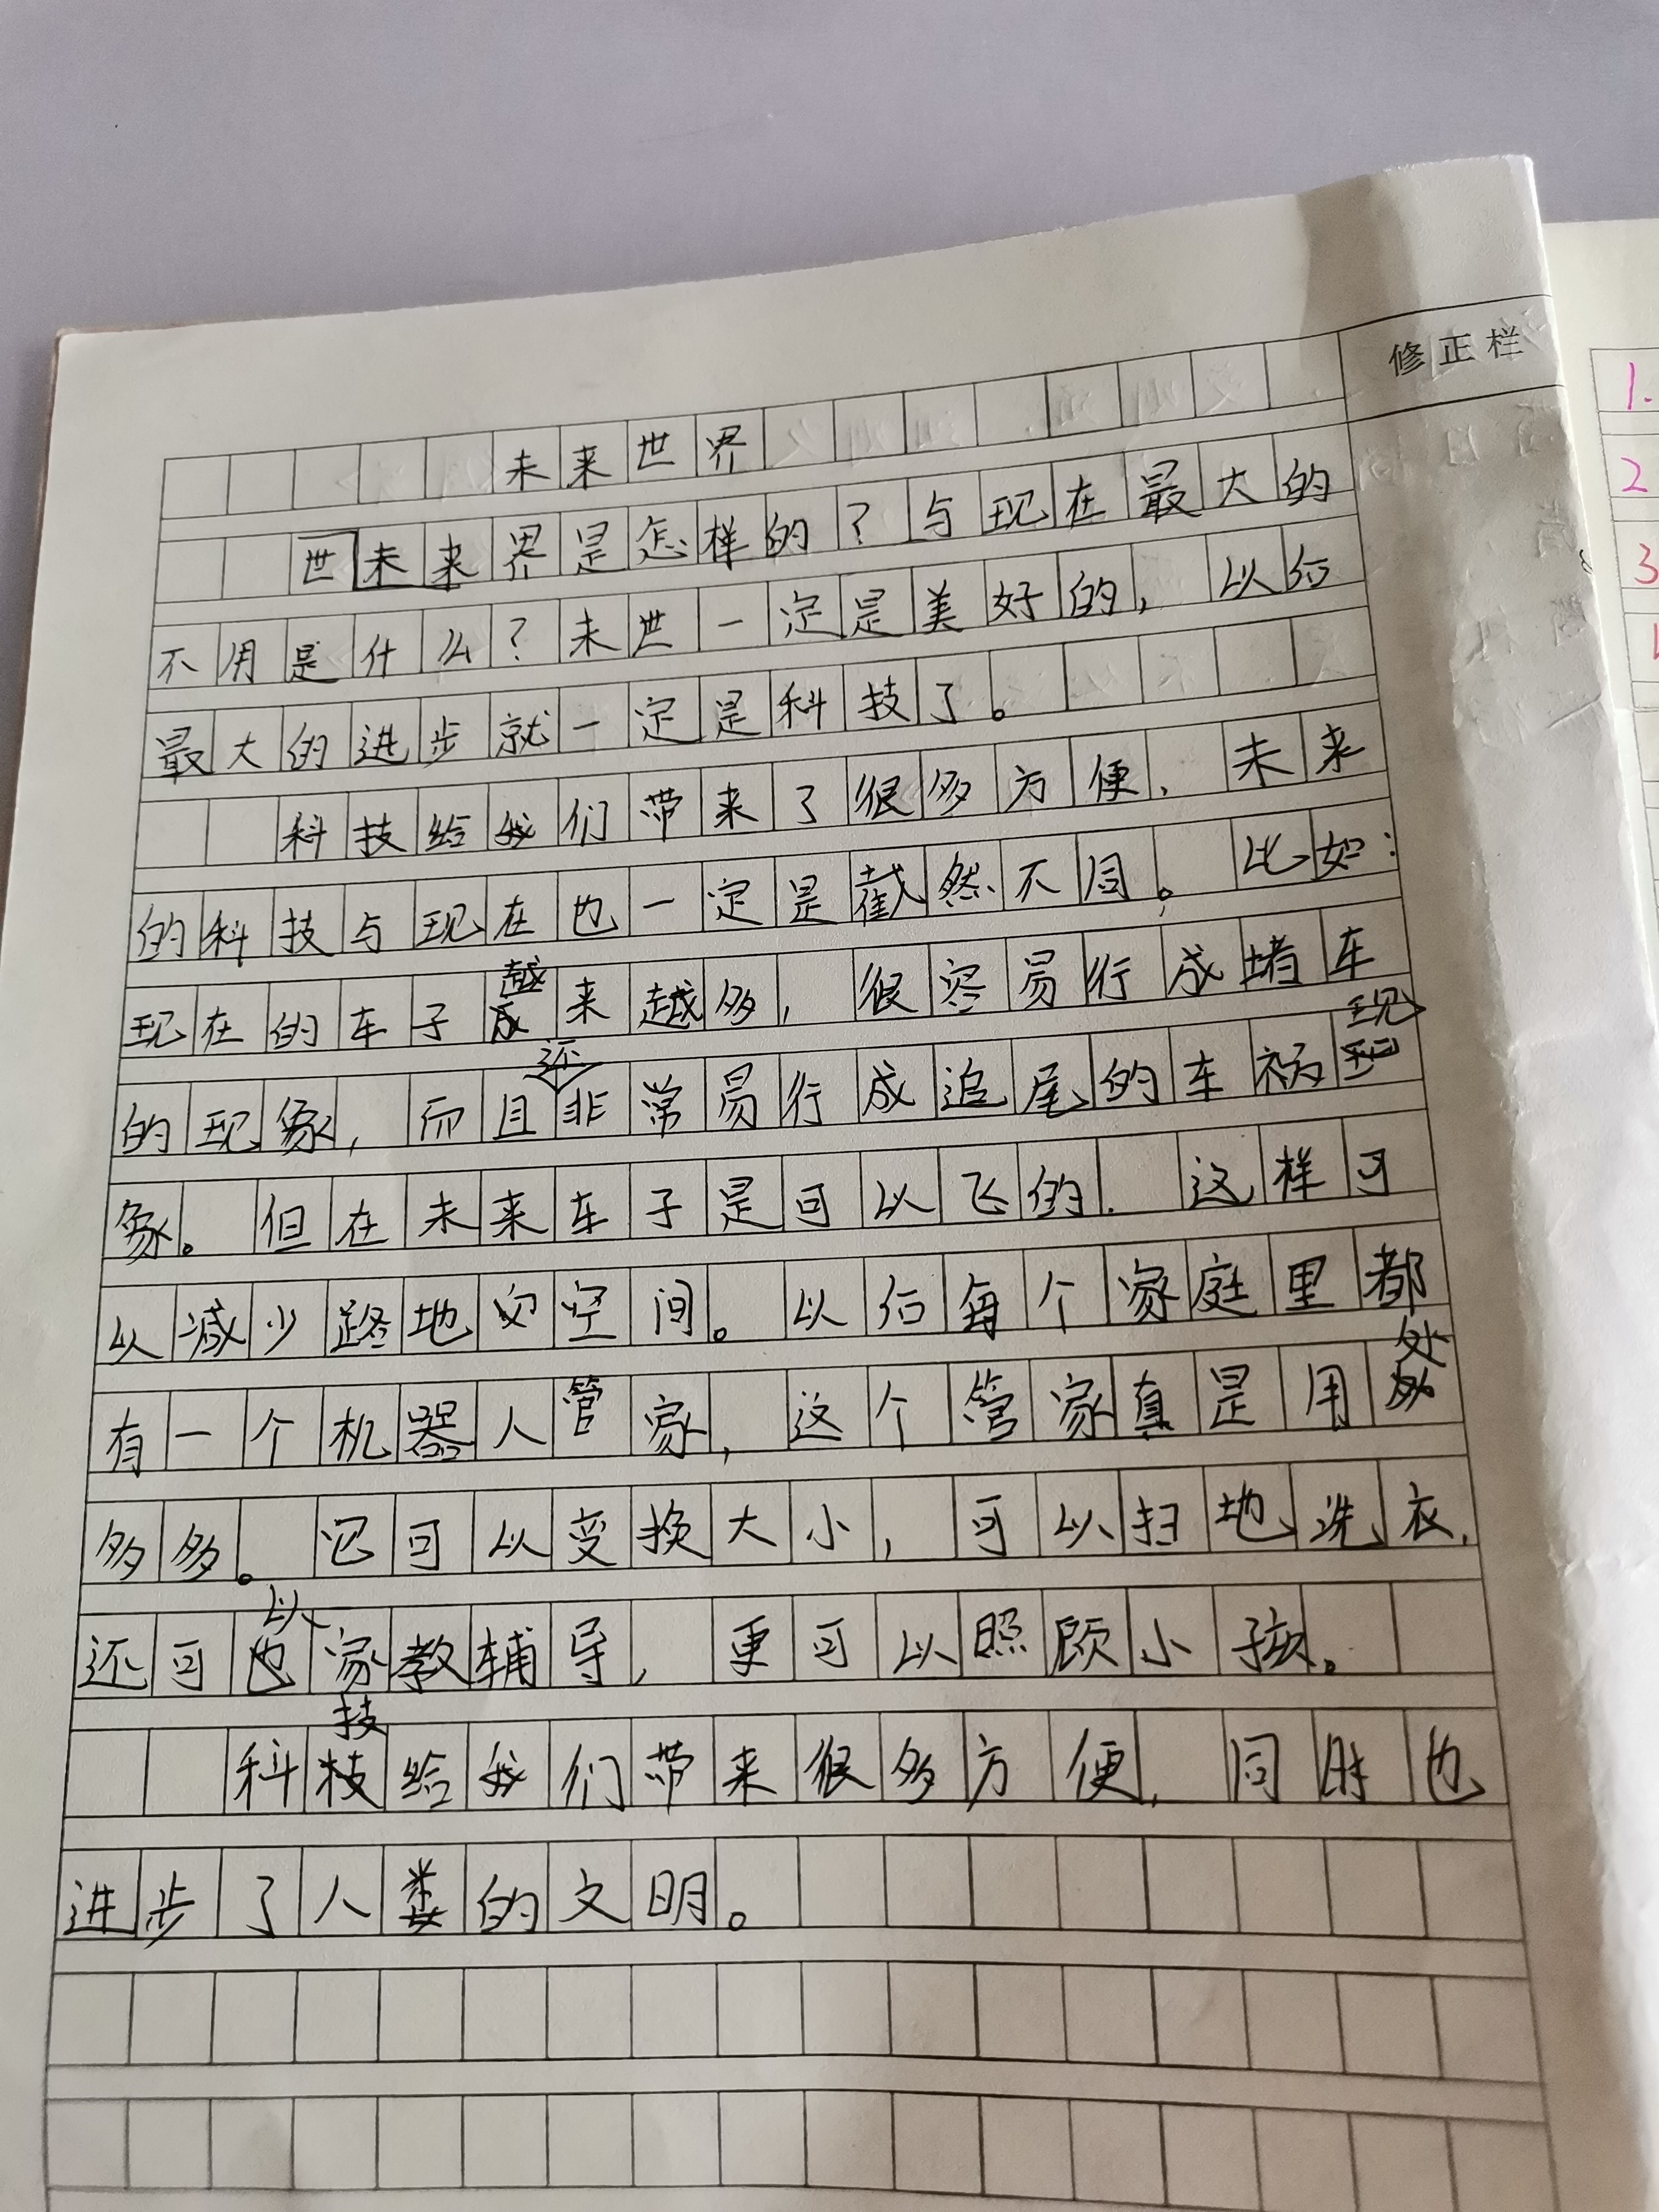 修正栏
未来世界
世未来界是怎样的？与现在最大的
不用是什么？未世一定是美好的，以后
最大的进步就一定是科技了。
科技给我们带来了很多方便，未来
的科技与现在也一定是截然不同。比如：
现在的车子越来越多，很容易行成堵车
的现象，而且还非常易行成追尾的车祸现
象。但在未来车子是可以飞的．这样可
以减少路地的空间。以后每个家庭里都
有一个机器人管家，这个管家真是用处
多多。它可以变换大小，可以扫地、洗衣，
还可以家教辅导，更可以照顾小孩。
科技给我们带来很多方便，同时也
进步了人类的文明。
1.
2
3